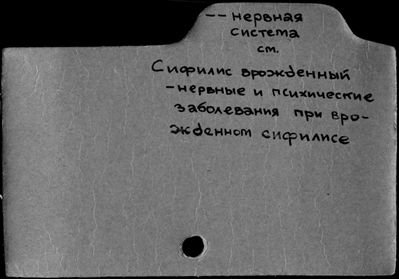 -- нервная
система
см.
Сифилис врожденный
- нервные и психические
заболевания при вро-
жденном сифилисе